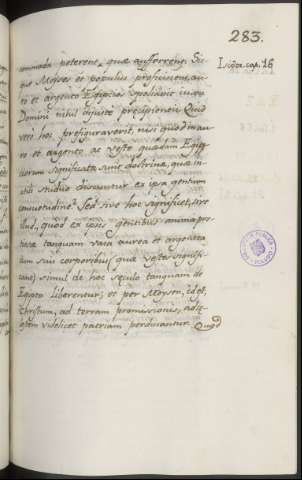 283.
commoda poterent, quæ aufferrent. Sic
Moyses et populus proficiscens, au-
ro et argento Egiptios spoliavit iussu
Domini nihil iniuste præcipientis. Quid
vero hoc præfiguraverit, nisi quod in au-
ro et argento, ac veste quædam Egip-
tiorum significatæ sunt doctrinæ, quæ in-
utili studio discuntur ex ipsa gentium
consuetudine? Sed sive hoc significet, sive
illud, quod ex ipsis gentibus animæ pre-
tiosæ tanquam vasa aurea et argentea
cum suis corporibus (quæ vestes signifi-
cant) simul de hoc seculo tanquam de
Egipto liberentur; et per Moysen, id est,
Christum, ad terram promissionis, ad il-
lam videlicet patriam perducantur. Quod
cap. 16